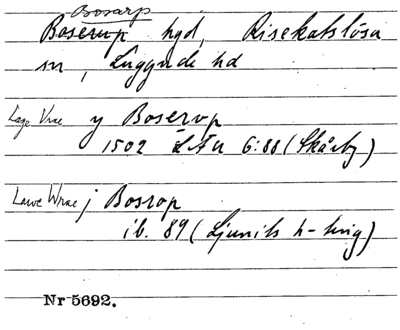 Bosarp
Boserup hgd, Risekatslösa
sn, Luggude hd
Lage Vrae y Boserop
1502 LÅu 6:88 (Skårby)
Lawe Wrae j Bosrop
ib. 89 (Ljunits h-ting)
Nr 5692.